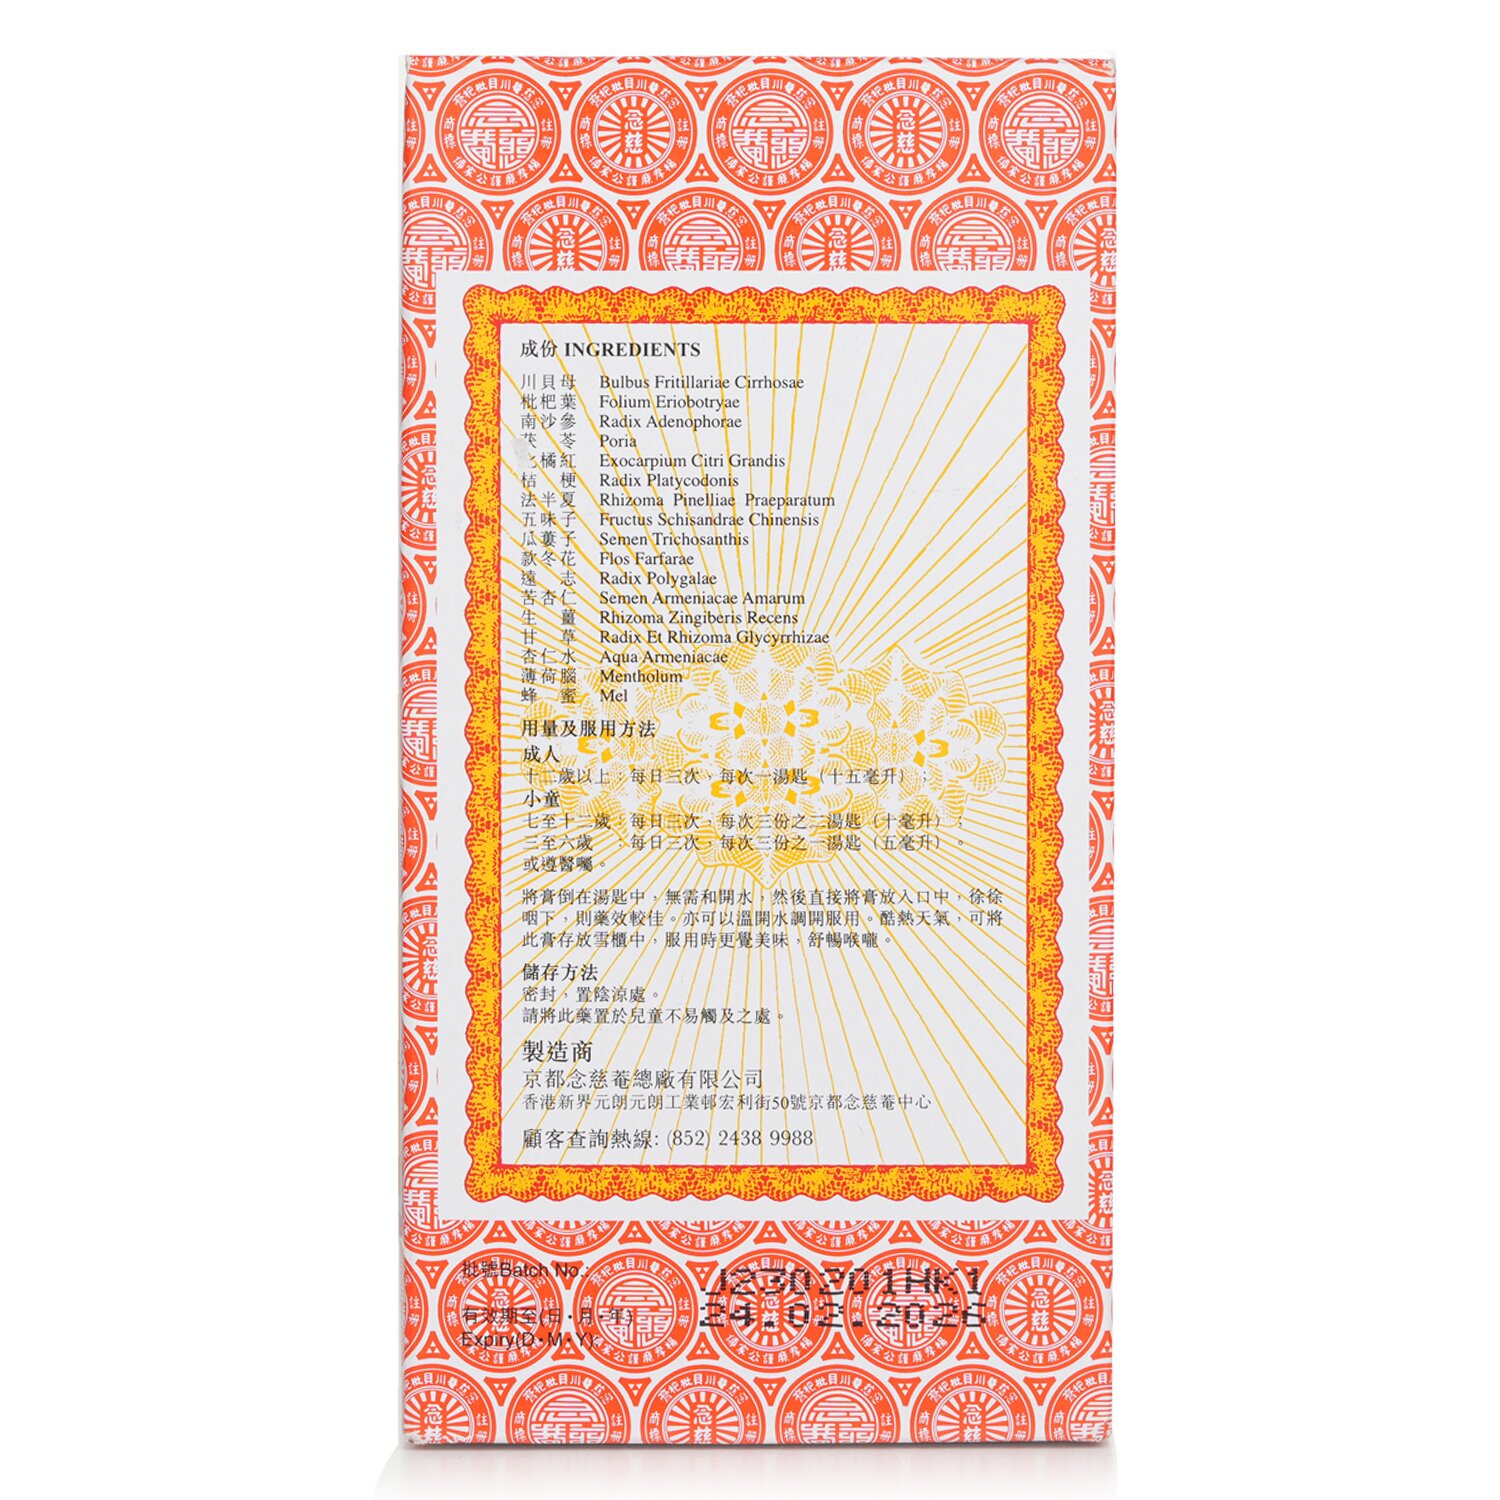 成份 INGREDIENTS
川貝母 Bulbus Fritillariae Cirrhosae
枇杷葉 Folium Eriobotryae
南沙參 Radix Adenophorae
茯苓 Poria
橘紅 Exocarpium Citri Grandis
桔梗 Radix Platycodonis
法半夏 Rhizoma Pinelliae Praeparatum
五味子 Fructus Schisandrae Chinensis
瓜蔞子 Semen Trichosanthis
款冬花 Flos Farfarae
遠志 Radix Polygalae
苦杏仁 Semen Armeniacae Amarum
生薑 Rhizoma Zingiberis Recens
甘草 Radix Et Rhizoma Glycyrrhizae
杏仁水 Aqua Armeniacae
薄荷腦 Mentholum
蜂蜜 Mel
用量及服用方法
成人
十二歲以上：每日三次，每次一湯匙（十五毫升）；
小童
七至十一歲：每日三次，每次三份之二湯匙（十毫升）；
三至六歲：每日三次，每次三份之一湯匙（五毫升）。
或遵醫囑。
將膏倒在湯匙中，無需和開水，然後直接將膏放入口中，徐徐
咽下，則藥效較佳。亦可以溫開水調開服用。酷熱天氣，可將
此膏存放雪櫃中，服用時更覺美味，舒暢喉嚨。
儲存方法
密封，置陰涼處。
請將此藥置於兒童不易觸及之處。
製造商
京都念慈菴總廠有限公司
香港新界元朗元朗工業邨宏利街50號京都念慈菴中心
顧客查詢熱線: (852) 2438 9988
批號Batch No.:
有效期至(日·月·年)
Expiry(D·M·Y):
24.02.2026